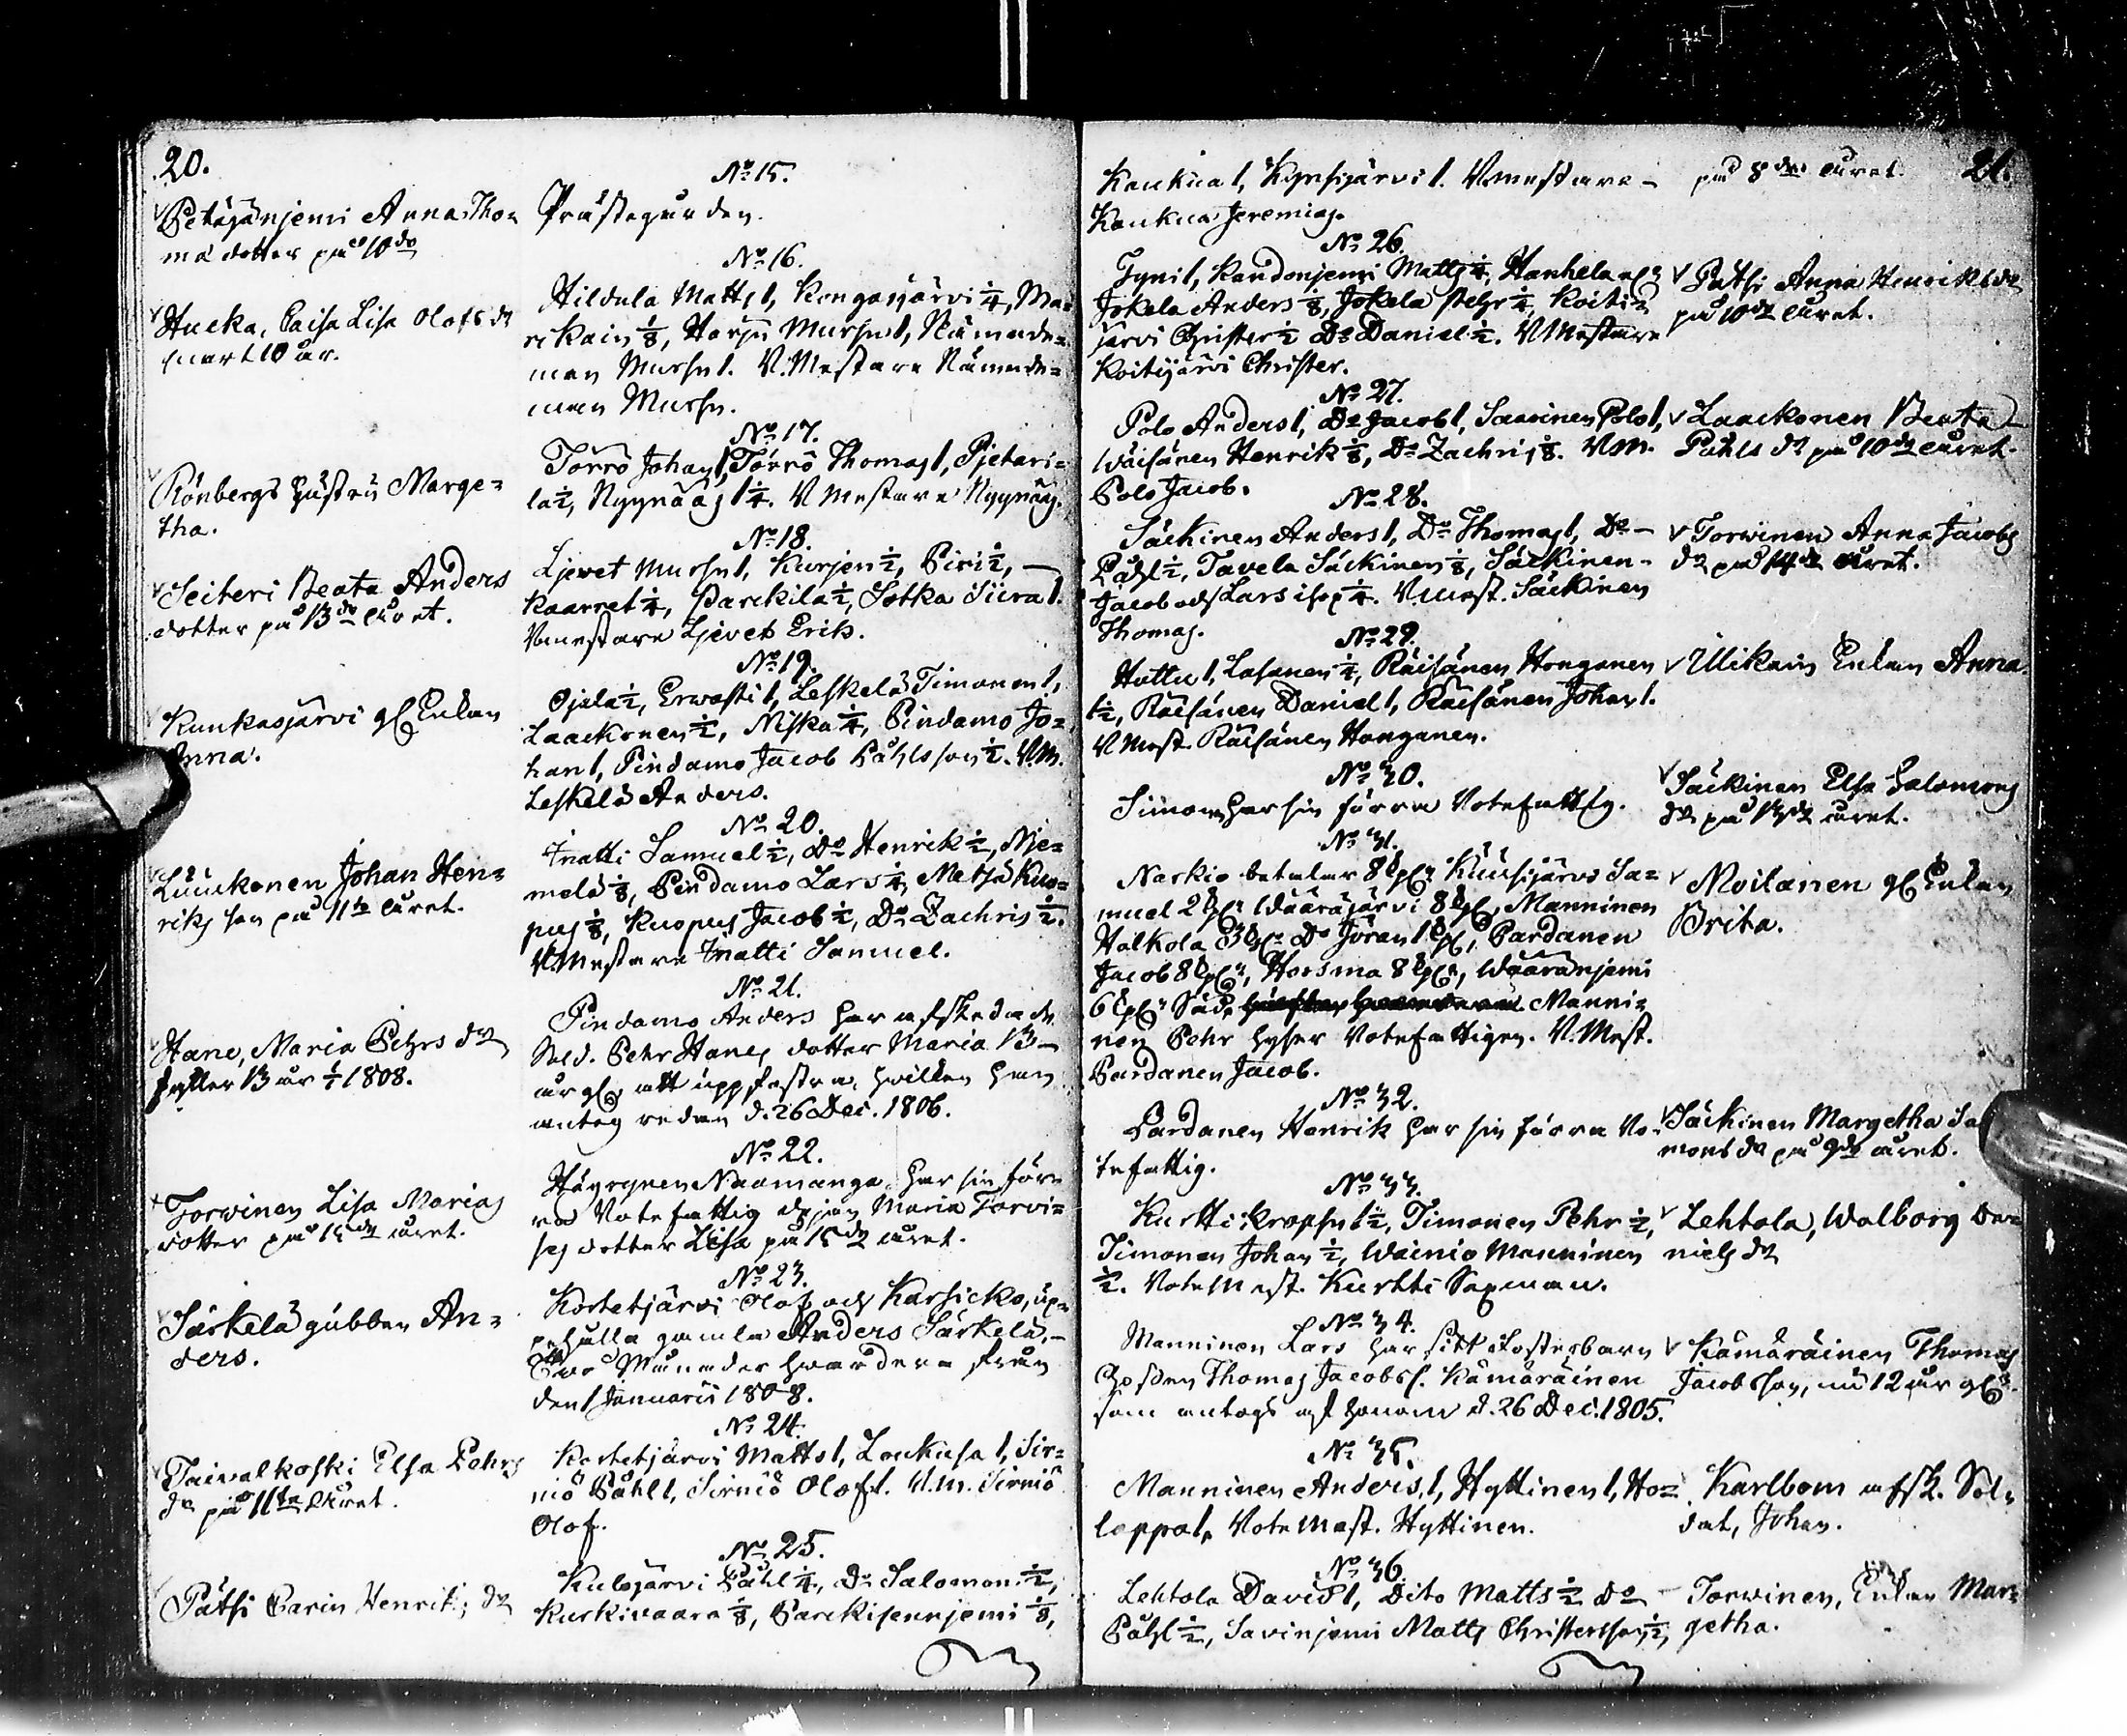 20.
Petäjänjemi Anna Tho=
mæ dotter på 10de
Hucka, Caisa Lisa Olofs dr
snart 10 år.
Rönbergs hustru Marge=
tha.
Seiteri Beata Anders
dotter på 13de året.
Kunkasjärvi gl Enkan
Anna.
Luuckonen Johan Hen=
riks son på 11te året.
Hane, Maria Pehrs dr
fyller 13 år 1808.
Torwinen Lisa Marias
dotter på 15de året.
Särkelä gubben An=
ders.
Taivalkoski Elsa Pehrs
dr på 11te året.
Pätsi Carin Henriks dr
No 15.
Prästegården.
No 16.
Hildula Matts 1, Kongasjärvi ¼, Ma=
rikain ⅛, Harju Mursu 1, Nämnde=
man Mursu 1. V. Mästare Nämnde=
man Mursu.
No 17.
Törrö Johan 1, Törrö Thomas 1, Pjetari=
la ½, Nyynääs 1 ¼. V Mästare Nyynäs.
No 18.
Ljevet Mursu 1, Kurjen ½, Piri ½, —
Kaarret ¼, Parckila ½, Sotka Siira 1.
Vmästare Ljevet Erik.
No 19.
Ojala ½, Erwasti 1, Leskelä Timonen 1,
Laackonen ½, Niska ¼, Pindamo Jo=
han 1, Pindamo Jacob Påhlsson ½. V.M.
Leskelä Anders.
No 20.
Inatti Samuel ½, Do Henrik ½, Nje=
melä ⅛, Pindamo Lars ¼, Matts Kuo=
pus ⅛, Kuopus Jacob ½, Do Zachris ½.
V. Mästare Inatti Samuel.
No 21.
Pindamo Anders har afskedade
Sold. Pehr Hanes dotter Maria 13 —
år gl, att uppfostra, hvilken han
antog redan d. 26 Dec. 1806.
No 22.
Häyrynen Naamanga har sin förr
ra Votefattig Pigan Maria Torvi=
ses dotter Lisa på 15de året.
No 23.
Kortetjärvi Olof och Karsicko, up=
pehålla gamla Anders Särkelä, —
Två Månader hvardera från
den 1 Januarii 1808.
No 24.
Kortetjärvi Matts 1, Loukusa 1, Sir=
niö Påhl 1, Sirniö Olof 1. V.M. Sirniö
Olof.
No 25.
Kulojärvi Påhl ¼, Do Salomon ½,
Kurkivaara ⅛, Parckisennjemi ⅛,
21.
Koukua 1, Kynsijärvi 1. Vmästare —
Koukua Jeremias.
No 26.
Tyni 1, Kandonjemi Matts ¼, Hanhela
Jokela Anders ⅛, Jokela Pehr ¼, Koiti=
järvi Christer ½ Do Daniel ½. V Mästare
Koitijärvi Christer.
No 27.
Polo Anders 1, Do Jacob 1, Saarinen Polo 1,
Wäisänen Henrik ⅛, Do Zachris ⅛. V.M.
Polo Jacob.
No 28.
Säckinen Anders 1, Do Thomas 1, Do —
Påhl ½, Tavela Säckinen ⅛, Säckinen
Jacob och Lars ihop ¼. V Mäst. Säckinen
Thomas.
No 29.
Hattu 1, Lasanen ¼, Räisänen Honganen
1 ½, Räisänen Daniel 1, Räisänen Johan 1.
V Mäst. Räisänen Honganen.
No 30.
Simon har sin förra Votefattig.
No 31.
Narkio betalar 8 Kuusijärvi Sa=
muel 2 Wääräjärvi 8, Manninen
Halkola 3 Do Jöran 1, Pardanen
Jacob 8, Horsma 8, Wääränjemi
6 Säd. Manni=
nen Pehr hyser Votefattigen. V. Mäst.
Pardanen Jacob.
No 32.
Pardanen Henrik har sin förra Vo=
tefattig.
No 33.
Kurtti Kropsu 1 ½, Timonen Pehr ½,
Timonen Johan ½, Wainio Manninen
½. Vote Mäst. Kurtti Sexman.
No 34.
Manninen Lars har sitt Fosterbarn
Gossen Thomas Jacobss. Kämäräinen
som antogs af honom d. 26 Dec. 1805.
No 35.
Manninen Anders 1, Hyttinen 1, Ho=
loppa 1. Vote Mäst. Hyttinen.
No 36.
Lehtola David 1, Dito Matts ½ Do —
Påhl ½, Savinjemi Matts Christersson ½,
på 8de året.
Pätsi Anna Henriks dr
på 10de året.
Laackonen Beata
Påhls dr på 10de året.
Torwinen Anna Jacobs
dr på 14de året.
Ulikain Enkan Anna.
Säckinen Elsa Salomons
dr på 13de året.
Moilanen gl Enkan
Brita.
Säckinen Margetha Sa
mons dr på 9de året.
Lehtola, Walborg Da=
niels dr
Kämäräinen Thomas
Jacobsson, nu 12 år gl.
Karlbom afsk. Sol=
dat, Johan.
Torwinen, Enkan Mar=
getha.